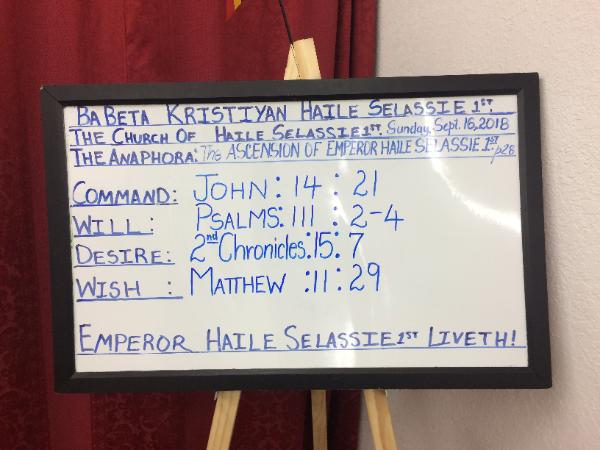 BA BETA KRISTIYAN HAILE SELASSIE 1ST.
THE CHURCH OF HAILE SELASSIE 1ST. Sunday, Sept. 16, 2018
THE ANAPHORA: The ASCENSION OF EMPEROR HAILE SELASSIE 1ST. p26
COMMAND: JOHN: 14 : 21
WILL: PSALMS: 111 : 2-4
DESIRE: 2nd Chronicles: 15: 7
WISH : MATTHEW :11: 29
EMPEROR HAILE SELASSIE 1ST LIVETH!